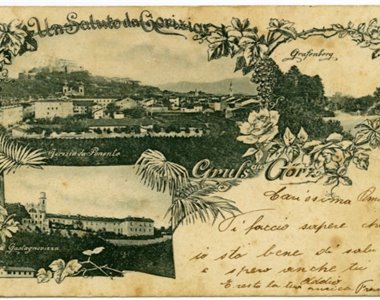 Un Saluto da Gorizia
Grafenberg
Gorizia da Ponente
Gruß aus Görz
Castagnavizza
Carissima
Ti faccio sapere che
io sto bene di salu
e spero anche tu
addio
E resto la tua amica